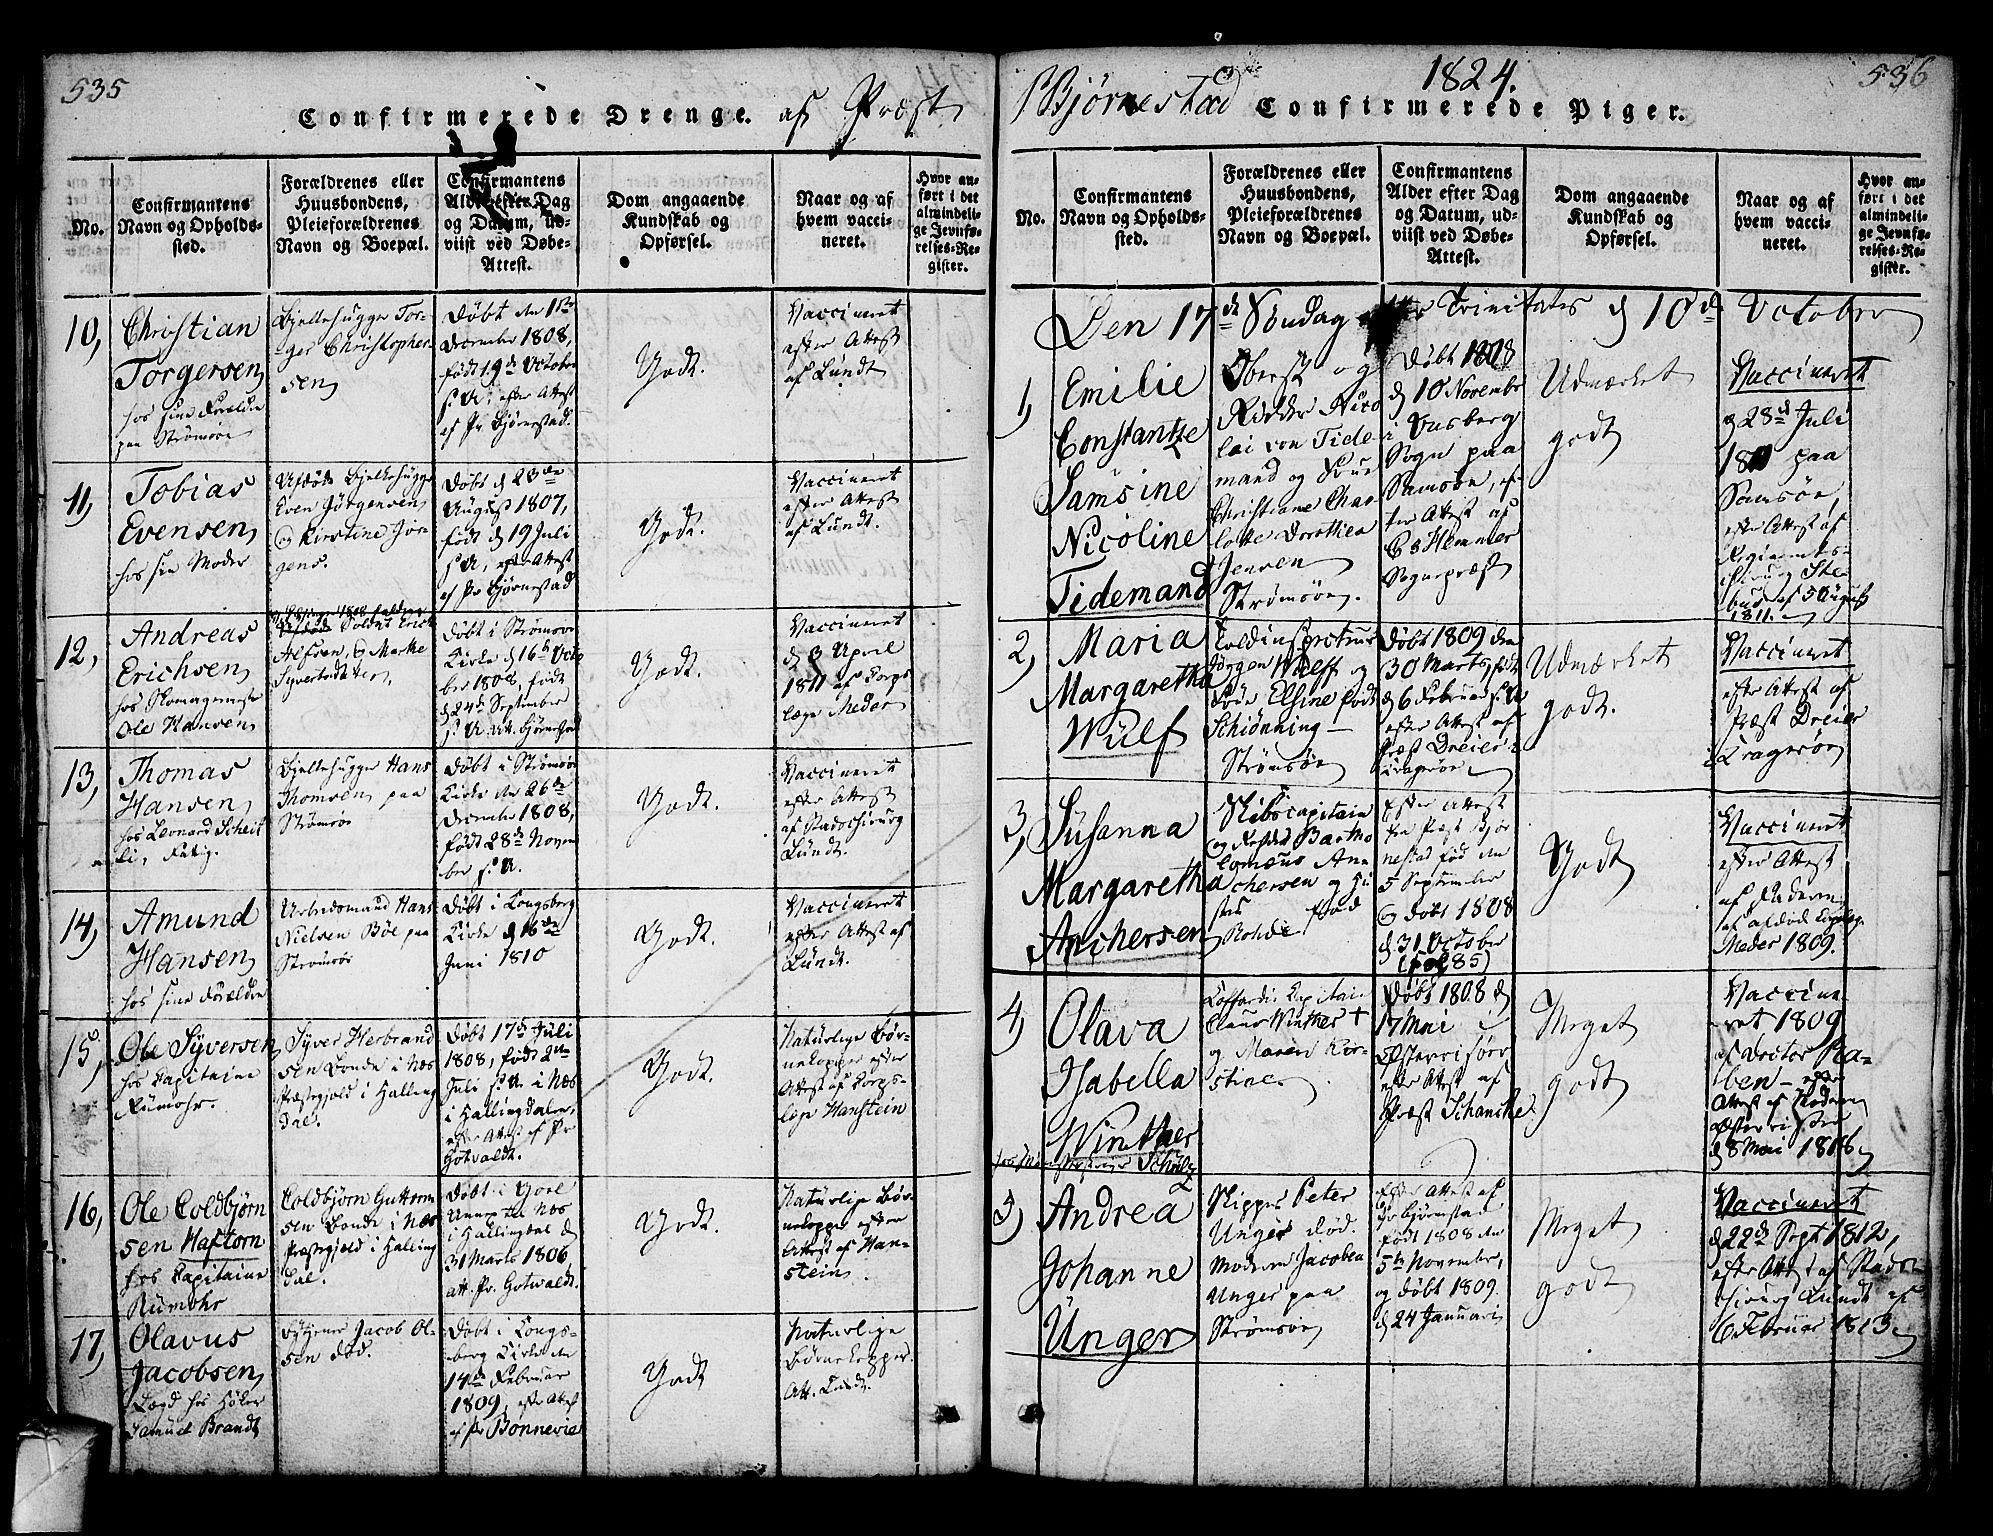 535
Confirmerede Drenge. af Præst
No.
Confirmantens
Navn og Opholds-
sted.
Forældrenes eller
Huusbondens,
Pleieforældrenes
Navn og Boepæl.
Confirmantens
Alder efter Dag
og Datum, ud-
viist ved Døbe-
Attest.
Dom angaaende
Kundskab og
Opførsel.
Naar og af
hvem vacci-
neret.
Hvor an-
ført i det
almindeli-
ge Jevnfø-
relses-Re-
gister.
10,
Christian
Torgersen
hos sine Forældre
paa Strömsöe
Bjelkehugger Tor-
ger Christopher
sen
Döbt den 11te
December 1808,
født 19de October
s. A, efter Attest
af Pr Bjørnestad.
Godt.
Vaccineret
efter Attest
af Lundt
11,
Tobias
Evensen
hos sin Moder
Afdöde Bjelkehugger
Even Jörgensen
og Kirstine Jör
gens.
Döbt d 23de
August 1807,
født d 19 Juli
s. A, efter Attest
af Pr Bjørnestad
Godt.
Vaccineret
efter Attest
af Lundt.
12,
Andreas
Erichsen
hos
Ole Hansen
Soldat Erich
Alfsen, & Marthe
Syvertsdatter,
Döbt i Strömsöe
Kirke d 16de Octo
ber 1808, født
d 24de September
s. A. Att. Bjørnestad
Godt.
Vaccineret
d 3 April
1811 af Corps
læge Meder
13,
Thomas
Hansen
hos Leonard Scheit
li,
Bjelkehugger Hans
Thomsen paa
Strömsöe
Döbt i Strömsöe
Kirke den 26de
December 1808,
født 28de Novem
ber s. A.
Godt.
Vaccineret
efter Attest
af Stadschirurg
Lundt.
14,
Amund
Hansen
hos sine Forældre
Arbeidsmand Hans
Nielsen Böe paa
Strömsöe
Döbt i Kongsberg
Kirke d 16de
Juni 1810
Godt.
Vaccineret
efter Attest af
Lundt.
15,
Ole Syversen
hos Capitaine
Rumohr.
Syver Herbrand
sen Bonde i Næs
Præstegjeld i Halling
dal.
Döbt 17de Juli
1808, født 2den
Juli s. A. i Næs
i Hallingdalen,
efter Attest af Pr
Gotvaldt.
Godt.
Naturlige Bør-
nekopper efter
Attest af Corps-
læge Hanstein
16,
Ole Coldbjørn
sen Haftorn
hos Capitaine
Rumohr
Coldbjørn Guttorm
sen Bonde i Næs
Præstegjeld i Halling
dal.
Döbt i Goel
Annex til Næs
i Hallingdal d
31 Marts 1806
att. Pr. Gotwaldt.
Godt.
Naturlige Bør-
nekopper efter
Attest af Han-
stein
17,
Olavus
Jacobsen
Lægd hos Höker
Samuel Brandt
Jacob Ol-
sen död.
Döbt i Kongs-
berg Kirke den
14de Februar
1809, efter Attest
af Pr Bonnevie
Godt
Naturlige
Börnekopper.
Att. Lundt.
1824.
536
Bjørnestad Confirmerede Piger.
No.
Confirmantens
Navn og Opholds-
sted.
Forældrenes eller
Huusbondens,
Pleieforældrenes
Navn og Boepæl.
Confirmantens
Alder efter Dag
og Datum, ud-
viist ved Døbe-
Attest.
Dom angaaende
Kundskab og
Opførsel.
Naar og af
hvem vacci-
neret.
Hvor an-
ført i det
almindeli-
ge Jevnfø-
relses-Re-
gister.
Den 17de Söndag efter Trinitates d 10de October
1,
Emilie
Constantze
Samsine
Nicoline
Tidemand
Oberst og
Ridder Nico
lai von Tide-
mand og Frue
Christiane Char
lotte Dorothea
Jensen
Strömsöe.
Döbt 1808
d 10 Novembr
i Onsberg
Sogn paa
Samsöe, ef
ter Attest af
C S Hemmer
Sognepræst
Udmærket
godt
Vaccineret
d 28de Juli
1811 paa
Samsöe,
efter Attest af
Regiments-
chirurg Ste
bud af 5 August
1811.
2,
Maria
Margaretha
Wulf
Toldinspecteur
Jörgen Wulff og
Frue Elsine født
Schiönning —
Strömsöe
Döbt 1809 den
30 Marts, født
d 6 Februar s. A
efter Attest af
Præst Dreier i
Cragerøe
Udmærket
godt.
Vaccineret
efter Attest af
Præst Dreier
i Cragerøe
3,
Susanna
Margaretha
Anchersen
Skibscapitain
og Reder Bartho
lomæus An
chersen og Ju
stis født
Rohde
Efter Attest
fra Præst Bjør
nestad fød den
5 September
og döbt 1808
d 31 October
(fol 85)
Godt
Vaccineret
efter Attest
af Moderen
af afdöd Corpslæge
Meder 1809.
4,
Olava
Isabella
Winther
Coffardie Capitain
Claus Winther +
og Maren Kir-
stine.
Döbt 1808 d
17 Mai i
Østerrisöer
efter Attest af
Præst Schancke
Meget
godt
Vaccine
ret 1809
af Doctor Ra-
ben — efter
Attest af Moderen
Østerrisöer
d 8 Mai 1816
5,
Andrea
Johanne
Unger
Skipper Peter
Unger död.
Moderen Jacobea
Unger paa
Strömsöe
Efter Attest af
Pr Bjørnstad
født 1808 den
5te November,
og döbt 1809
d 24 Januari
Meget
godt
Vaccineret
d 22de Sept 1812,
efter Attest af Stads-
chirurg Lundt af
6 Februar 1813.